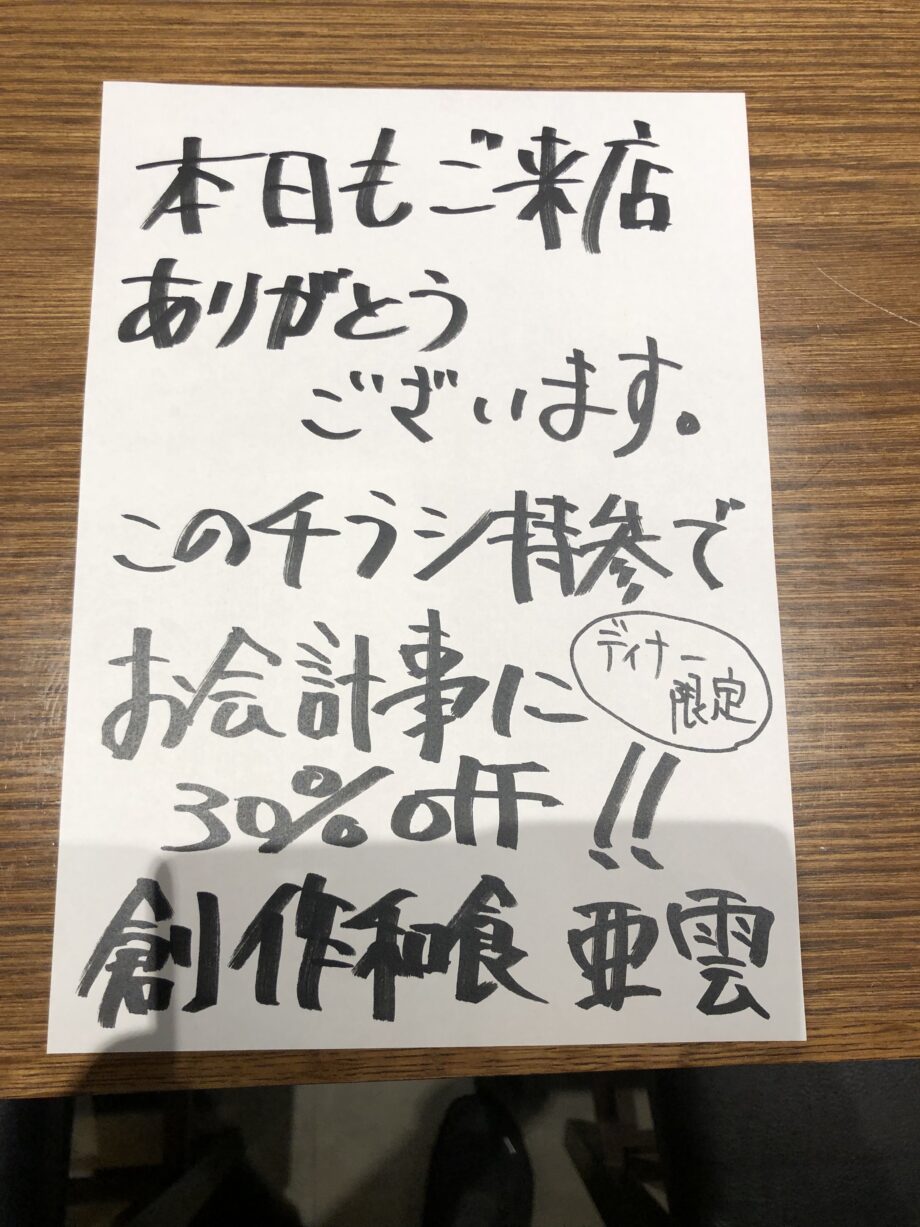 本日もご来店
ありがとう
ございます。
このチラシ持参で
お会計事に
ディナー
限定
30%off!!
創作和食 亜雲